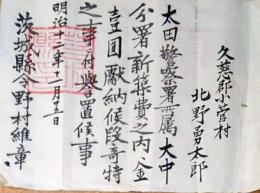 久慈郡小菅村
北野勇太郎
太田警察署所属大中
分署新築費之内金
壹圓献納候段奇特
之事ニ付誉置候事
明治十二年十二月十二日
茨城縣令野村維章